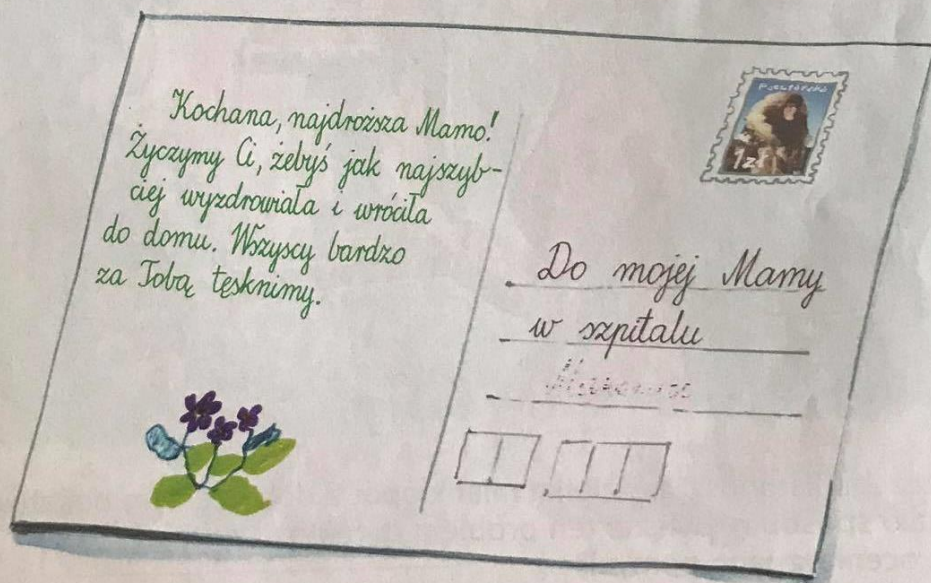 Kochana, najdroższa Mamo!
Życzymy Ci, żebyś jak najszyb-
ciej wyzdrowiała i wróciła
do domu. Wszyscy bardzo
za Tobą tęsknimy.
1 zł
Do mojej Mamy
w szpitalu